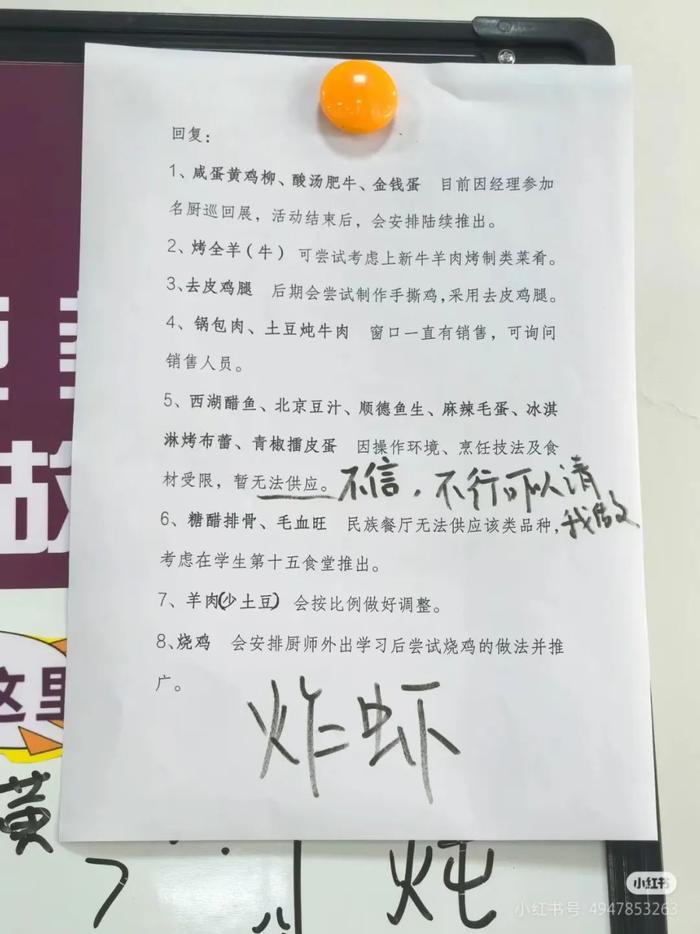 回复：
1、咸蛋黄鸡柳、酸汤肥牛、金钱蛋 目前因经理参加
名厨巡回展，活动结束后，会安排陆续推出。
2、烤全羊（牛） 可尝试考虑上新牛羊肉烤制类菜肴。
3、去皮鸡腿 后期会尝试制作手撕鸡,采用去皮鸡腿。
4、锅包肉、土豆炖牛肉 窗口一直有销售，可询问
销售人员。
5、西湖醋鱼、北京豆汁、顺德鱼生、麻辣毛蛋、冰淇
淋烤布蕾、青椒擂皮蛋 因操作环境、烹饪技法及食
材受限，暂无法供应。不信，不行可以请
我做
6、糖醋排骨、毛血旺 民族餐厅无法供应该类品种，
考虑在学生第十五食堂推出。
7、羊肉(少土豆) 会按比例做好调整。
8、烧鸡 会安排厨师外出学习后尝试烧鸡的做法并推
广。
炸虾
这里
黄
炖
小红书
小红书号 4947853263